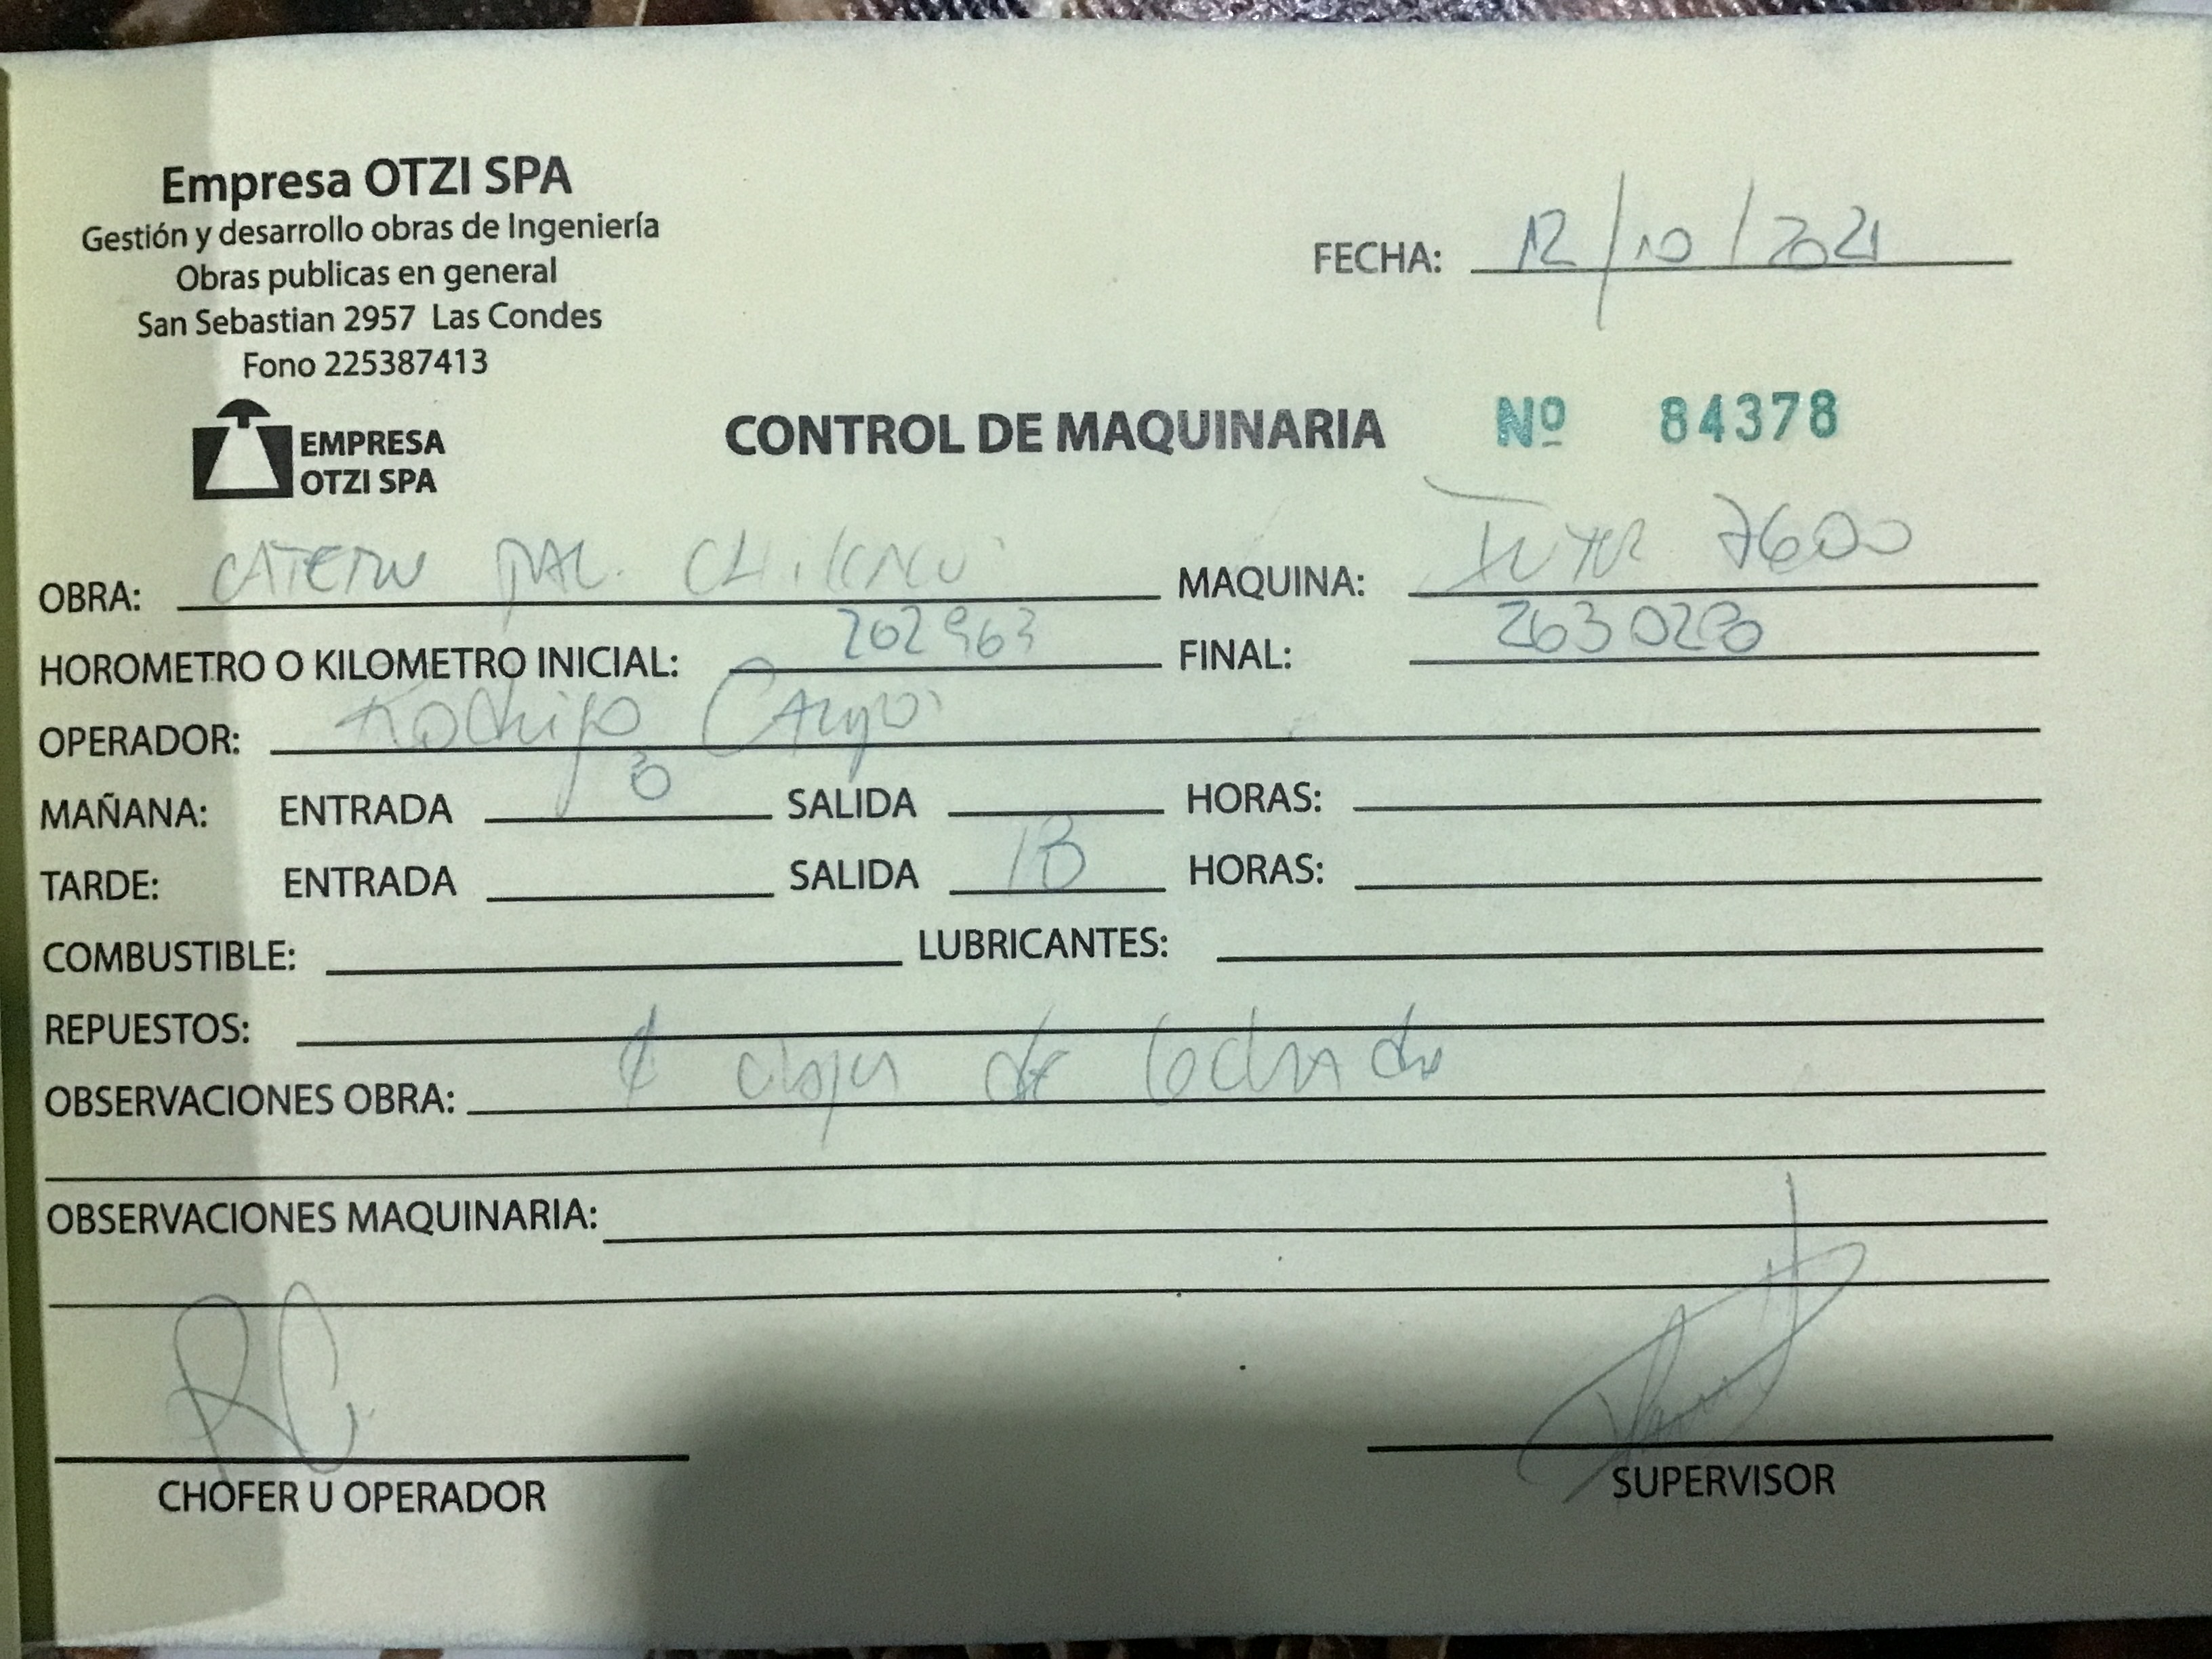 Empresa OTZI SPA
Gestión y desarrollo obras de Ingeniería
Obras publicas en general
San Sebastian 2957 Las Condes
Fono 225387413
FECHA: 12/10/2021
EMPRESA
OTZI SPA
CONTROL DE MAQUINARIA Nº 84378
OBRA: MAQUINA: INTER 7600
HOROMETRO O KILOMETRO INICIAL: 262963 FINAL:
OPERADOR: Rodrigo
MAÑANA: ENTRADA 8 SALIDA HORAS:
TARDE: ENTRADA SALIDA 18 HORAS:
COMBUSTIBLE: LUBRICANTES:
REPUESTOS:
OBSERVACIONES OBRA: de
OBSERVACIONES MAQUINARIA:
RC
CHOFER U OPERADOR
SUPERVISOR